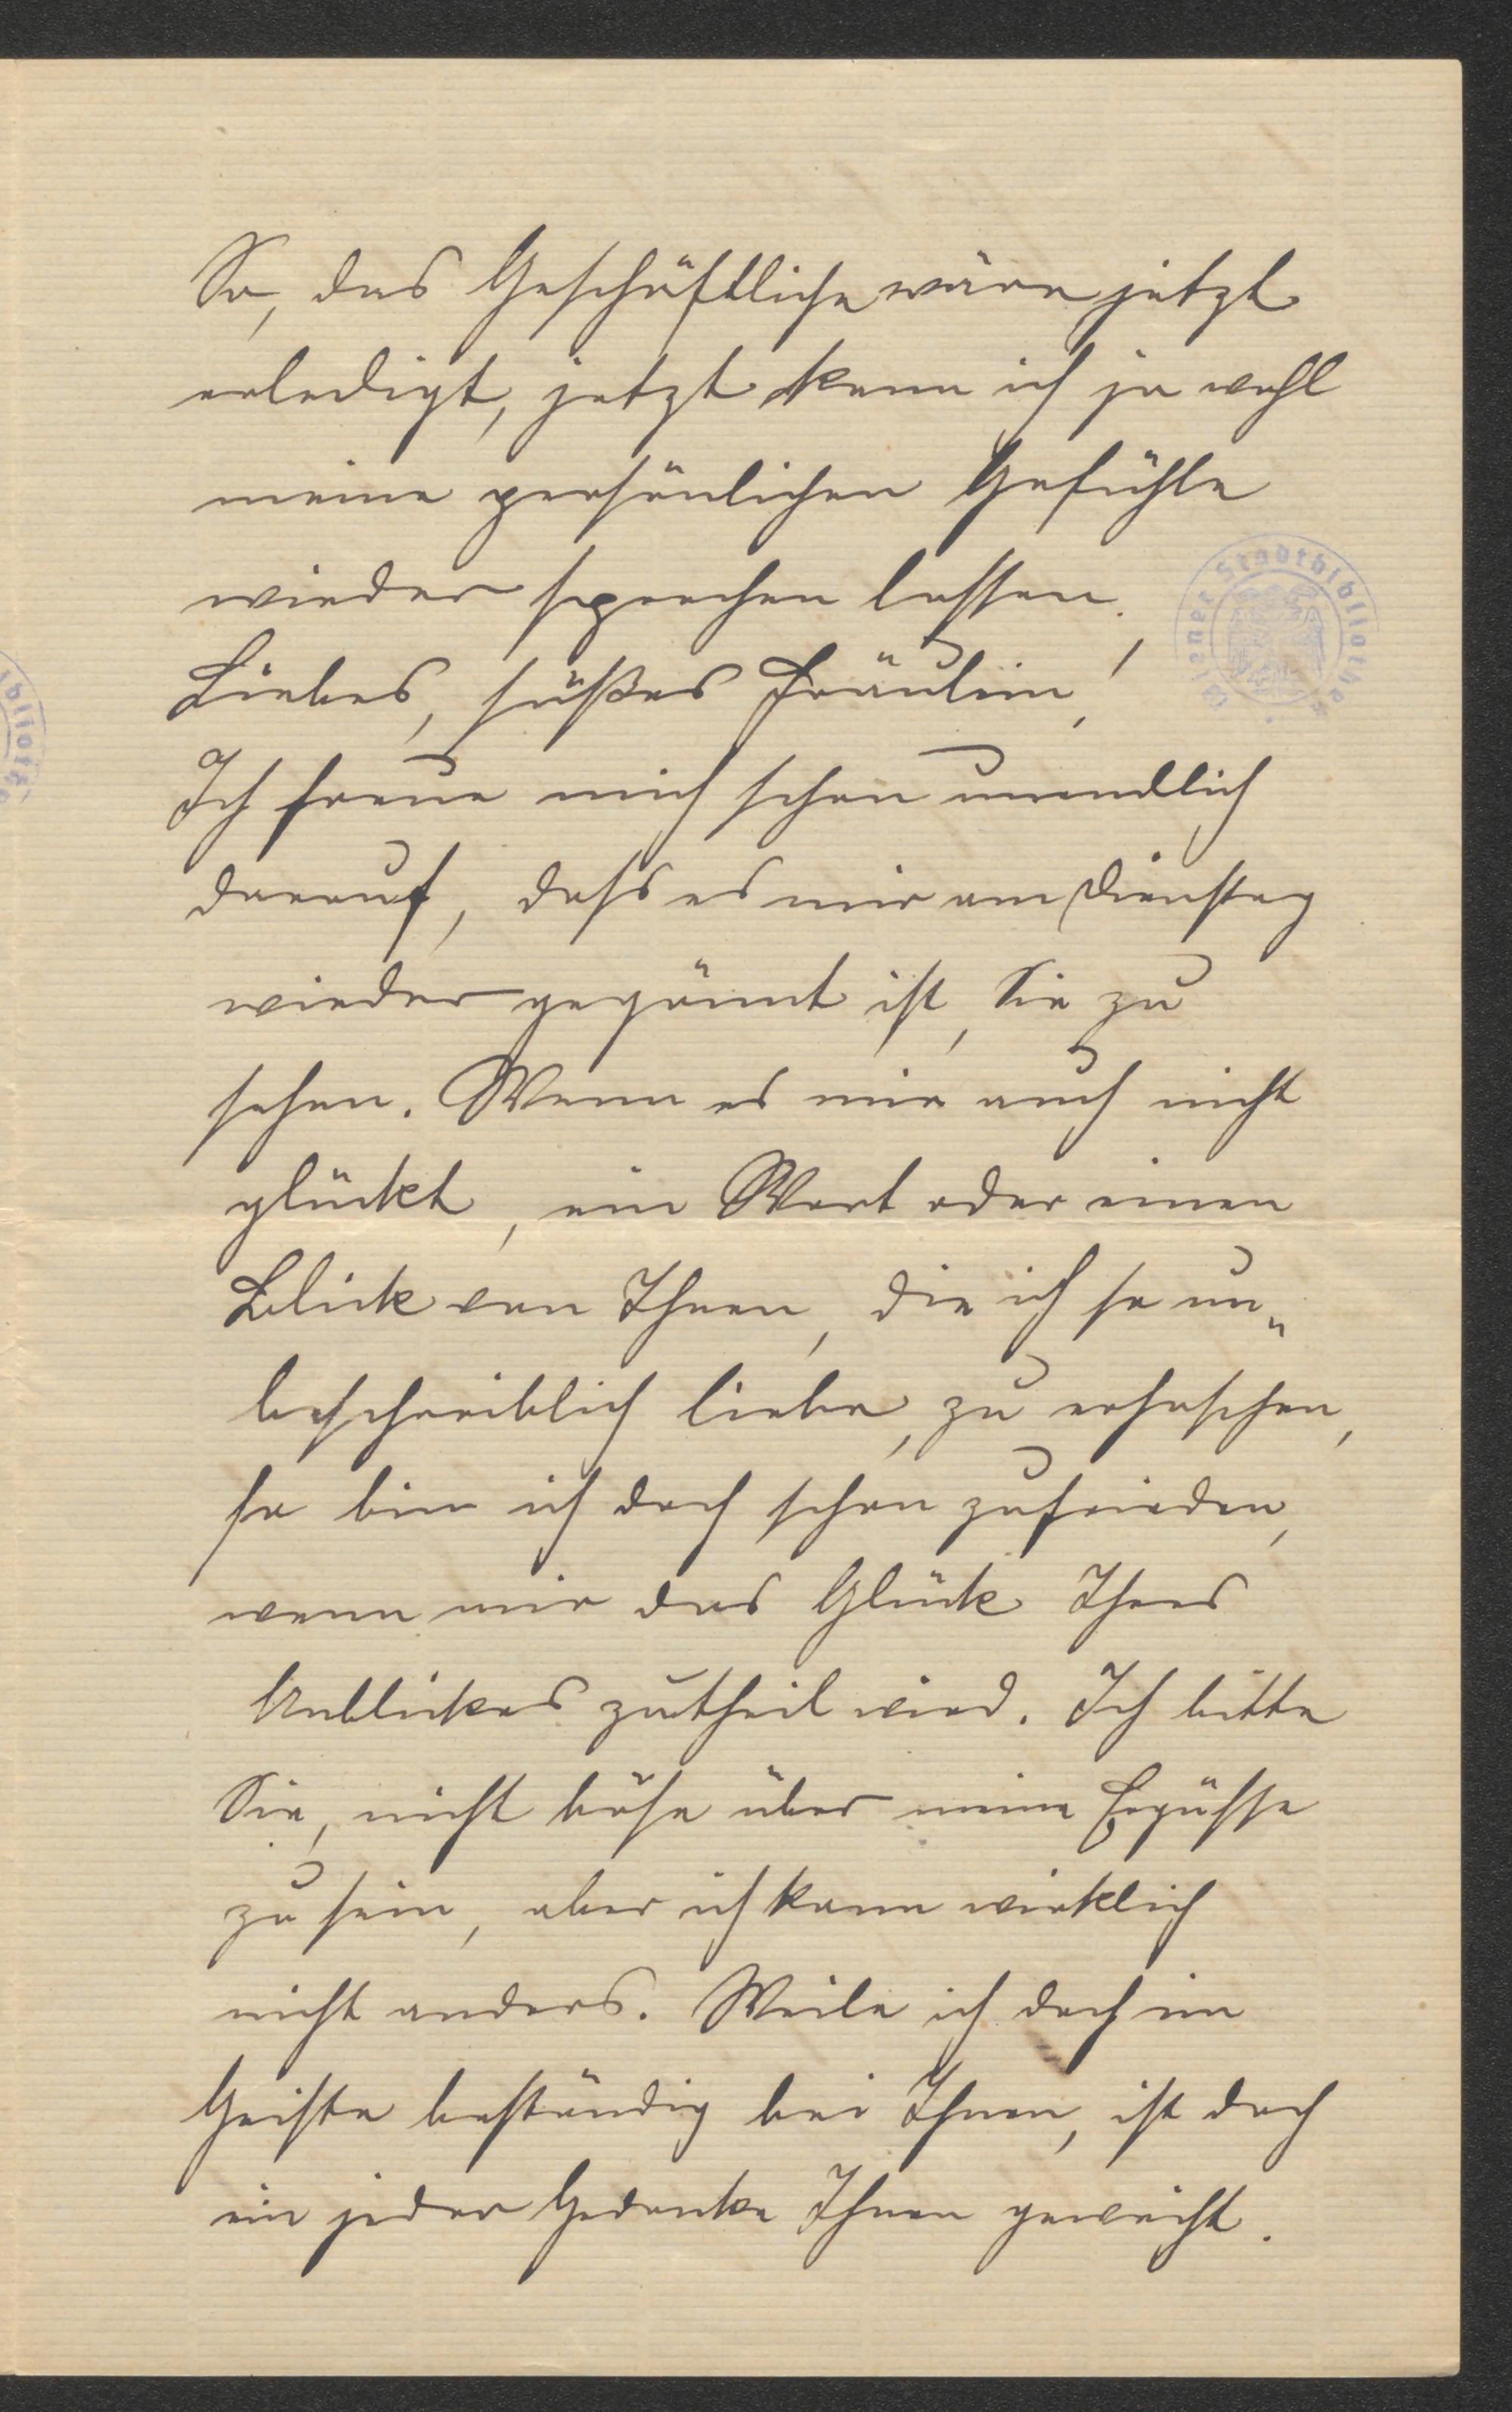 So, das Geschäftliche wäre jetzt
erledigt, jetzt kann ich ja wohl
meine persönlichen Gefühle
wieder sprechen lassen.
Liebes, süßes Fräulein!
Ich freue mich schon unendlich
darauf, dass es mir am Dienstag
wieder gegönnt ist, Sie zu
sehen. Wenn es mir auch nicht
glückt, ein Wort oder einen
Blick von Ihnen, die ich so un„
beschreiblich liebe, zu erhaschen,
so bin ich doch schon zufrieden,
wenn mir das Glück Ihres
Anblickes zutheil wird. Ich bitte
Sie, nicht böse über meine Ergüsse
zu sein, aber ich kann wirklich
nicht anders. Weile ich doch im
Geiste beständig bei Ihnen, ist doch
ein jeder Gedanke Ihnen geweiht.
Wiener Stadtbibliothek